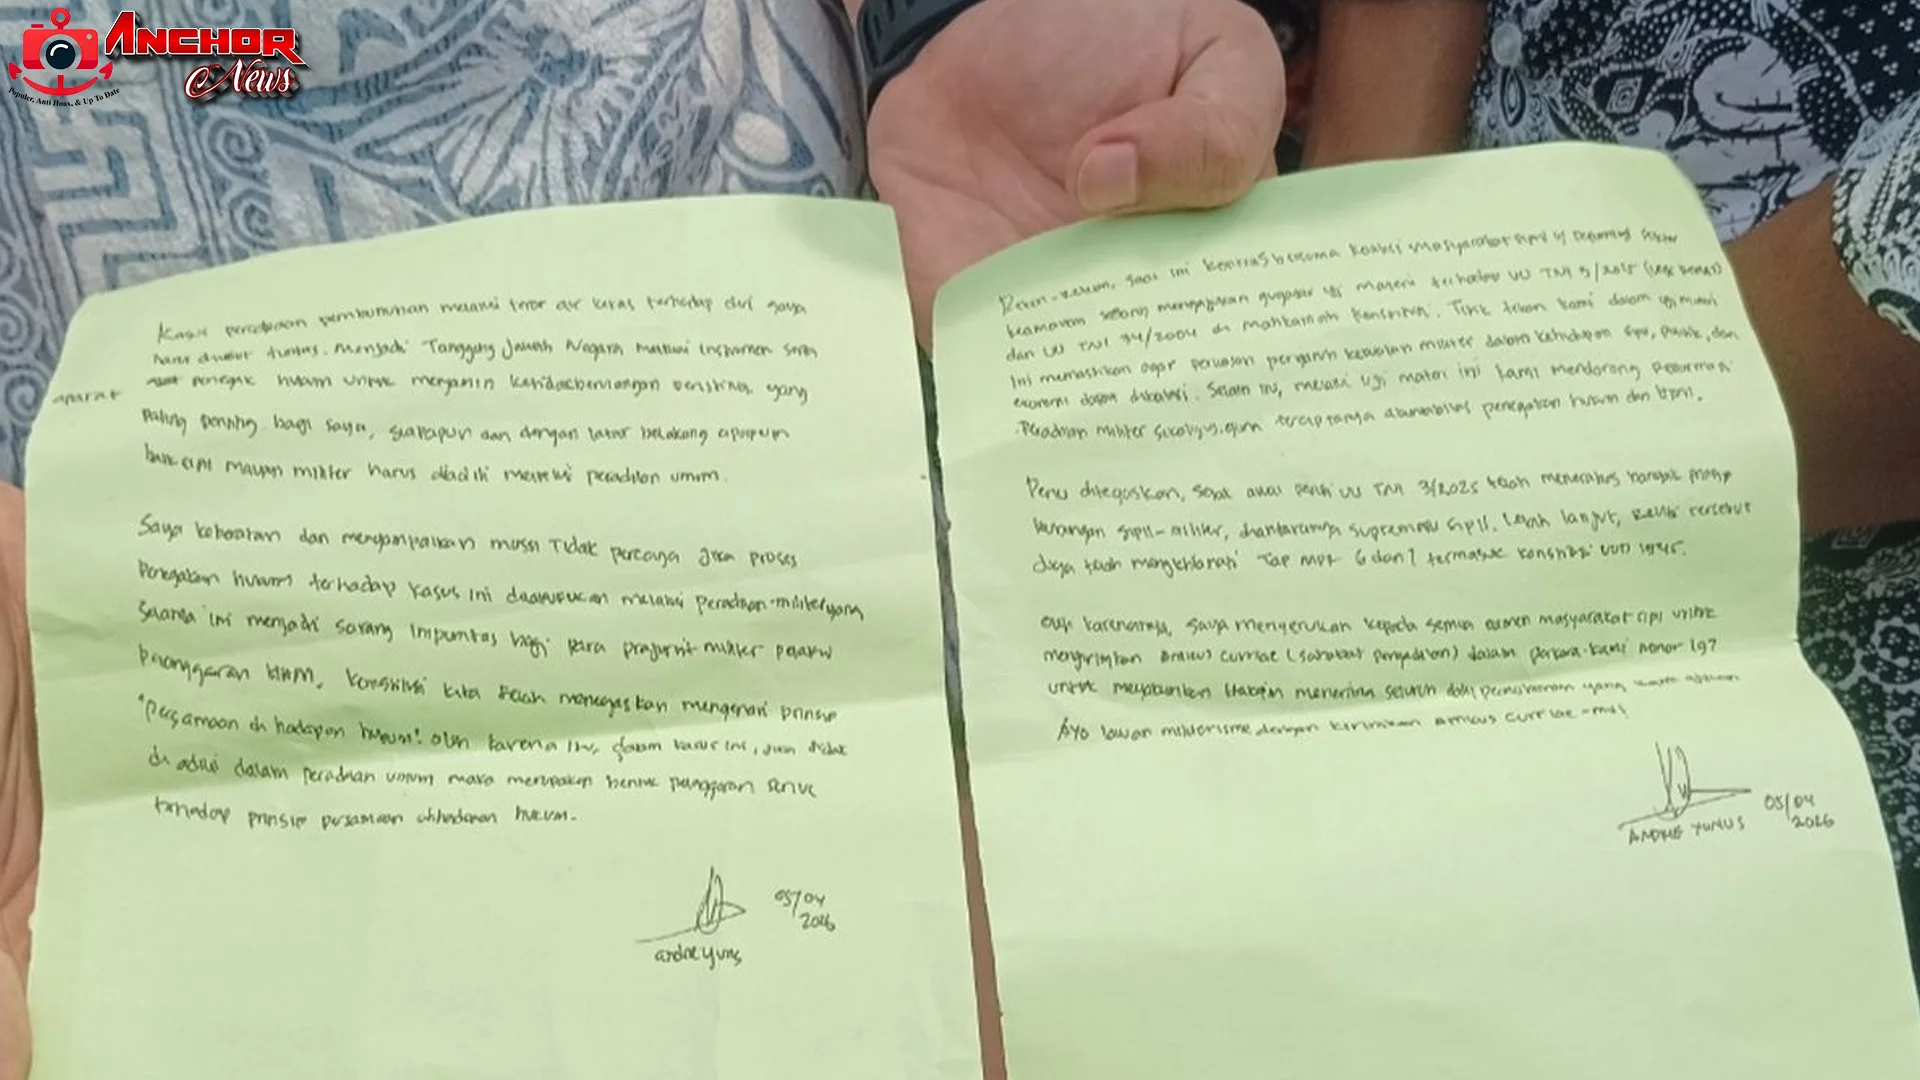 ANCHOR
News
Populer, Anti Hoax, & Up To Date
Kasus percobaan pembunuhan melalui teror air keras terhadap diri saya
harus diusut tuntas. Menjadi Tanggung Jawab Negara melalui instrumen
aparat penegak hukum untuk menjamin ketidakberulangan peristiwa, yang
paling penting bagi saya, siapapun dan dengan latar belakang apapun
baik sipil maupun militer harus diadili melalui peradilan umum.
Saya keberatan dan menyampaikan mosi Tidak percaya jika proses
Penegakan hukum terhadap kasus ini dilakukan melalui peradilan militer yang
selama ini menjadi sarang impunitas bagi para prajurit militer pelaku
pelanggaran HAM, konstitusi kita telah menegaskan mengenai prinsip
"persamaan di hadapan hukum". Oleh karena itu, dalam kasus ini, jika tidak
di adili dalam peradilan umum maka merupakan bentuk pelanggaran serius
terhadap prinsip persamaan dihadapan hukum.
05/04
2026
andrie yunus
Rekan-rekan, saat ini KontraS bersama Koalisi Masyarakat sipil Reformasi Sektor
Keamanan sedang mengajukan gugatan uji materi terhadap UU TNI 3/2025
dan UU TNI 34/2004 di Mahkamah Konstitusi. Titik tekan kami dalam uji materi
ini memastikan agar perluasan pengaruh kekuatan militer dalam kehidupan sipil, politik, dan
ekonomi dapat dibatasi. Selain itu, melalui uji materi ini kami mendorong Reformasi
Peradilan militer sekaligus agar terciptanya akuntabilitas penegakan hukum dan HAM.
Perlu ditegaskan, sejak awal revisi UU TNI 3/2025 telah menerabas banyak
sipil-militer, diantaranya supremasi sipil. Lebih lanjut, Revisi tersebut
juga telah mengkhianati Tap MPR 6 dan 7 termasuk konstitusi UUD 1945.
Oleh karenanya, saya menyerukan kepada semua elemen masyarakat sipil untuk
mengirimkan Amicus curiae (sahabat pengadilan) dalam perkara kami nomor 197
untuk meyakinkan Hakim menerima seluruh dalil permohonan yang kami ajukan
Ayo lawan militerisme dengan kirimkan Amicus curiae-mu!
05/04
2026
ANDRIE YUNUS